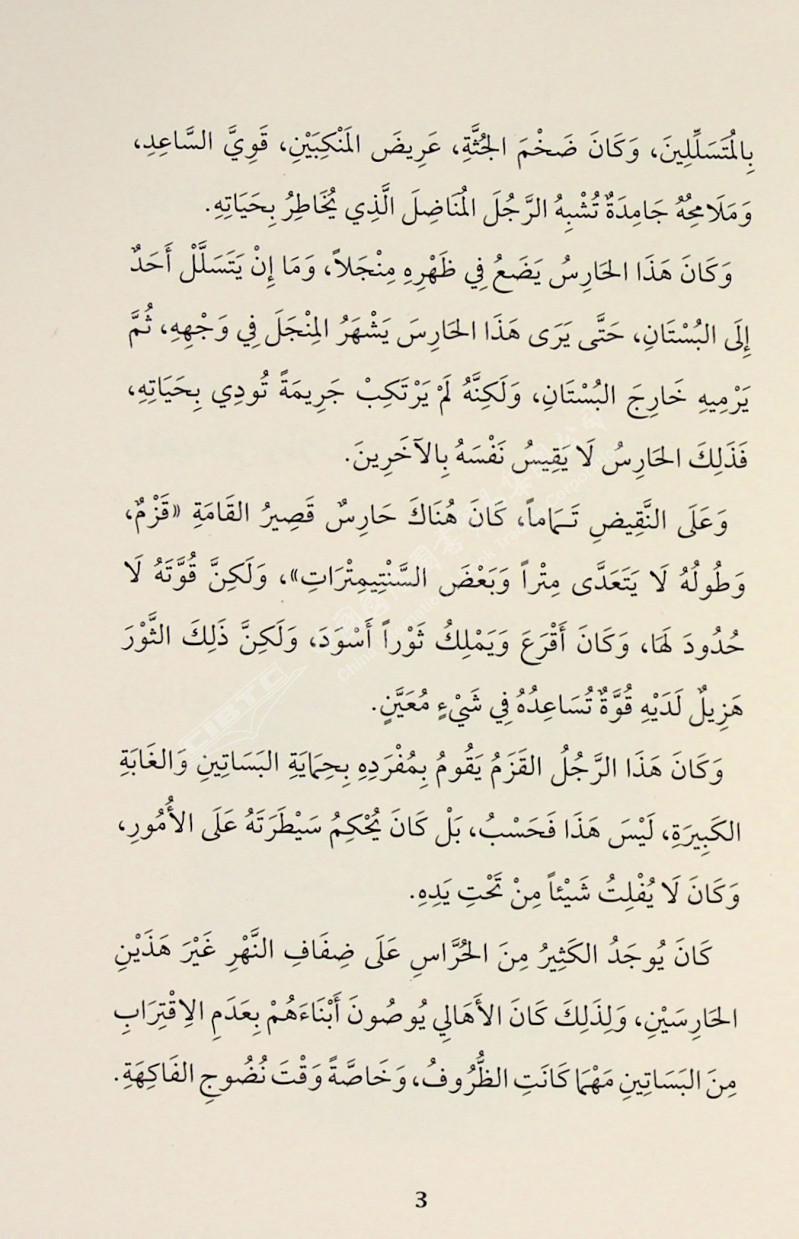 بِالْمُتَسَلِّلِينَ، وَكَانَ ضَخْمَ الجُثَّةِ، عَرِيضَ المَنْكِبَيْنِ، قَوِيَّ السَّاعِدِ،
وَمَلَامِحُهُ جَامِدَةٌ تُشْبِهُ الرَّجُلَ المُنَاضِلَ الَّذِي يُخَاطِرُ بِحَيَاتِهِ.
وَكَانَ هَذَا الحَارِسُ يَضَعُ فِي ظَهْرِهِ مِنْجَلاً، وَمَا إِنْ يَتَسَلَّلْ أَحَدٌ
إِلَى البُسْتَانِ، حَتَّى يَرَى هَذَا الحَارِسَ يَشْهَرُ المِنْجَلَ فِي وَجْهِهِ، ثُمَّ
يَرْمِيهِ خَارِجَ البُسْتَانِ، وَلَكِنَّهُ لَمْ يَرْتَكِبْ جَرِيمَةً تُودِي بِحَيَاتِهِ،
فَذَلِكَ الحَارِسُ لَا يَقِيسُ نَفْسَهُ بِالآخَرِينَ.
وَعَلَى النَّقِيضِ تَمَاماً، كَانَ هُنَاكَ حَارِسٌ قَصِيرُ القَامَةِ «قَزْمٌ،
وَطُولُهُ لَا يَتَعَدَّى مِتْراً وَبَعْضَ السَّنْتِيمِتْرَاتِ»، وَلَكِنَّ قُوَّتَهُ لَا
حُدُودَ لَهَا، وَكَانَ أَقْرَعَ وَيَمْلِكُ ثَوْراً أَسْوَدَ، وَلَكِنَّ ذَلِكَ الثَّوْرَ
هَزِيلٌ لَدَيْهِ قُوَّةٌ تُسَاعِدُهُ فِي شَيْءٍ مُعَيَّنٍ.
وَكَانَ هَذَا الرَّجُلُ القَزَمُ يَقُومُ بِمُفْرَدِهِ بِحِمَايَةِ البَسَاتِينِ وَالغَابَةِ
الكَبِيرَةِ، لَيْسَ هَذَا فَحَسْبُ، بَلْ كَانَ يُحْكِمُ سَيْطَرَتَهُ عَلَى الأُمُورِ،
وَكَانَ لَا يُفْلِتُ شَيْئاً مِنْ تَحْتِ يَدِهِ.
كَانَ يُوجَدُ الكَثِيرُ مِنَ الحُرَّاسِ عَلَى ضِفَافِ النَّهْرِ غَيْرَ هَذَيْنِ
الحَارِسَيْنِ، وَلِذَلِكَ كَانَ الأَهَالِي يُوصُونَ أَبْنَاءَهُمْ بِعَدَمِ الاِقْتِرَابِ
مِنَ البَسَاتِينِ مَهْمَا كَانَتِ الظُّرُوفُ، وَخَاصَّةً وَقْتَ نُضُوجِ الفَاكِهَةِ.
3